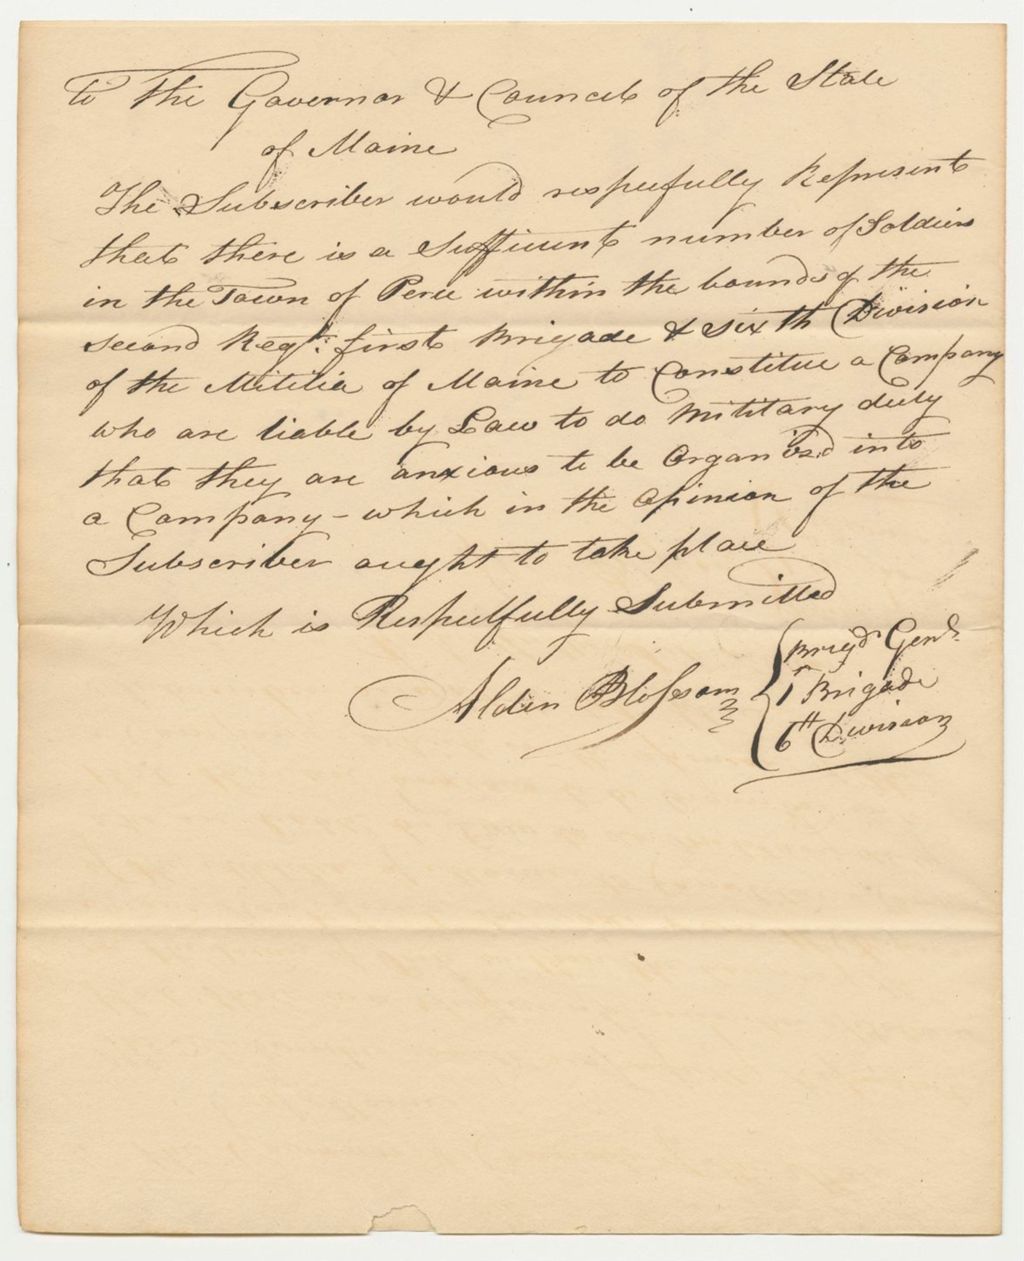 To The Governor & Council of the State
of Maine
The Subscriber would respecfully Represent
that there is a Sufficient number of Soldiers
in the Town of Peru within the bounds of the
second Regt. first Brigade & sixth Division
of the Militia of Maine to Constitue a Company
who are liable by Law to do Military duty
that they are anxious to be Organised into
a Company - which in the opinion of the
Subscriber aught to take place
Which is Respectfully Submitted
Alden Blossom
Brigd Genl.
1st Brigade
6th Division